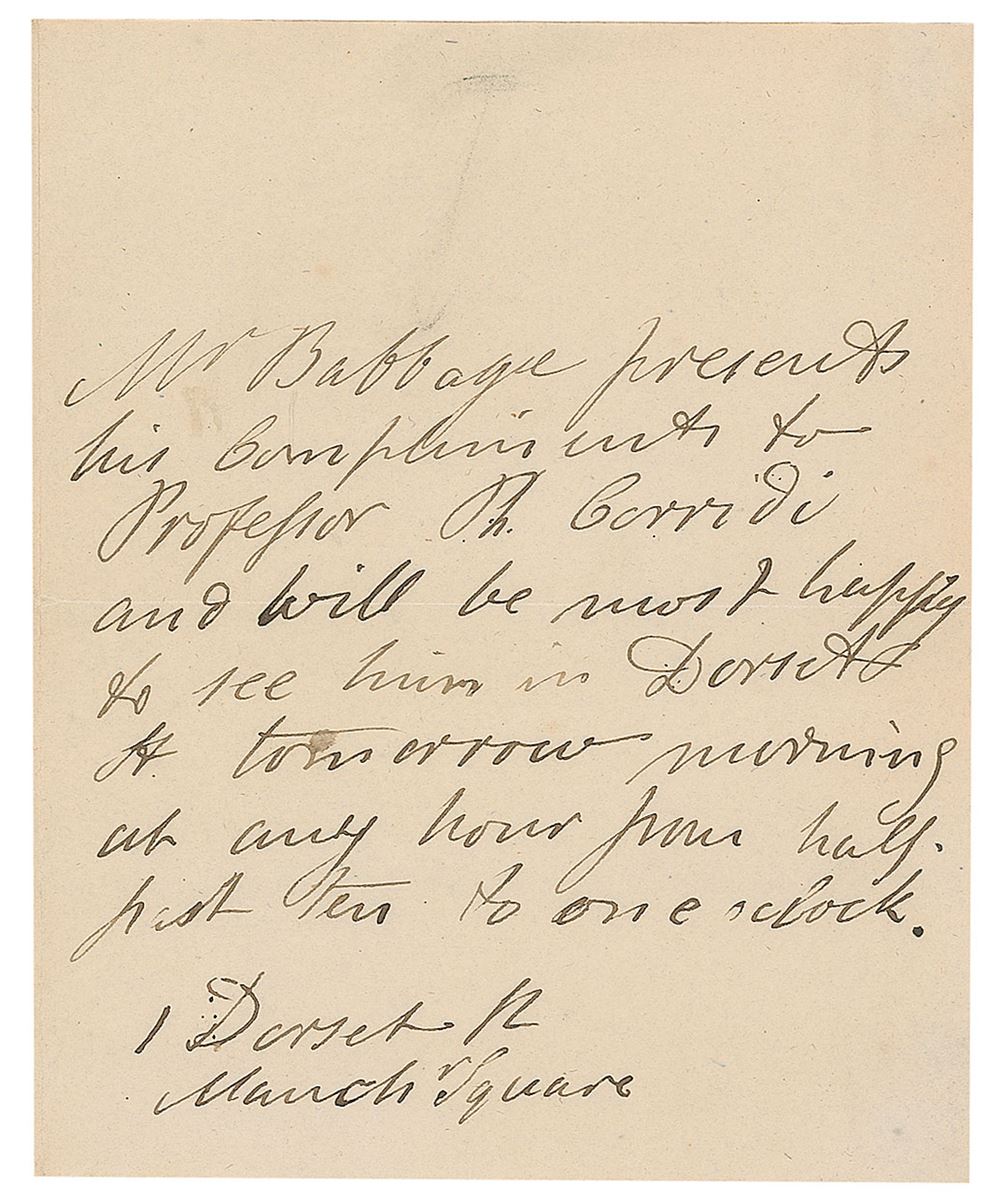 Mr Babbage presents
his Compliments to
Professor Ph. Corridi
and will be most happy
to see him in Dorset
St tomorrow morning
at any hour from half.
past ten to one oclock.
1 Dorset St
Manchr Square